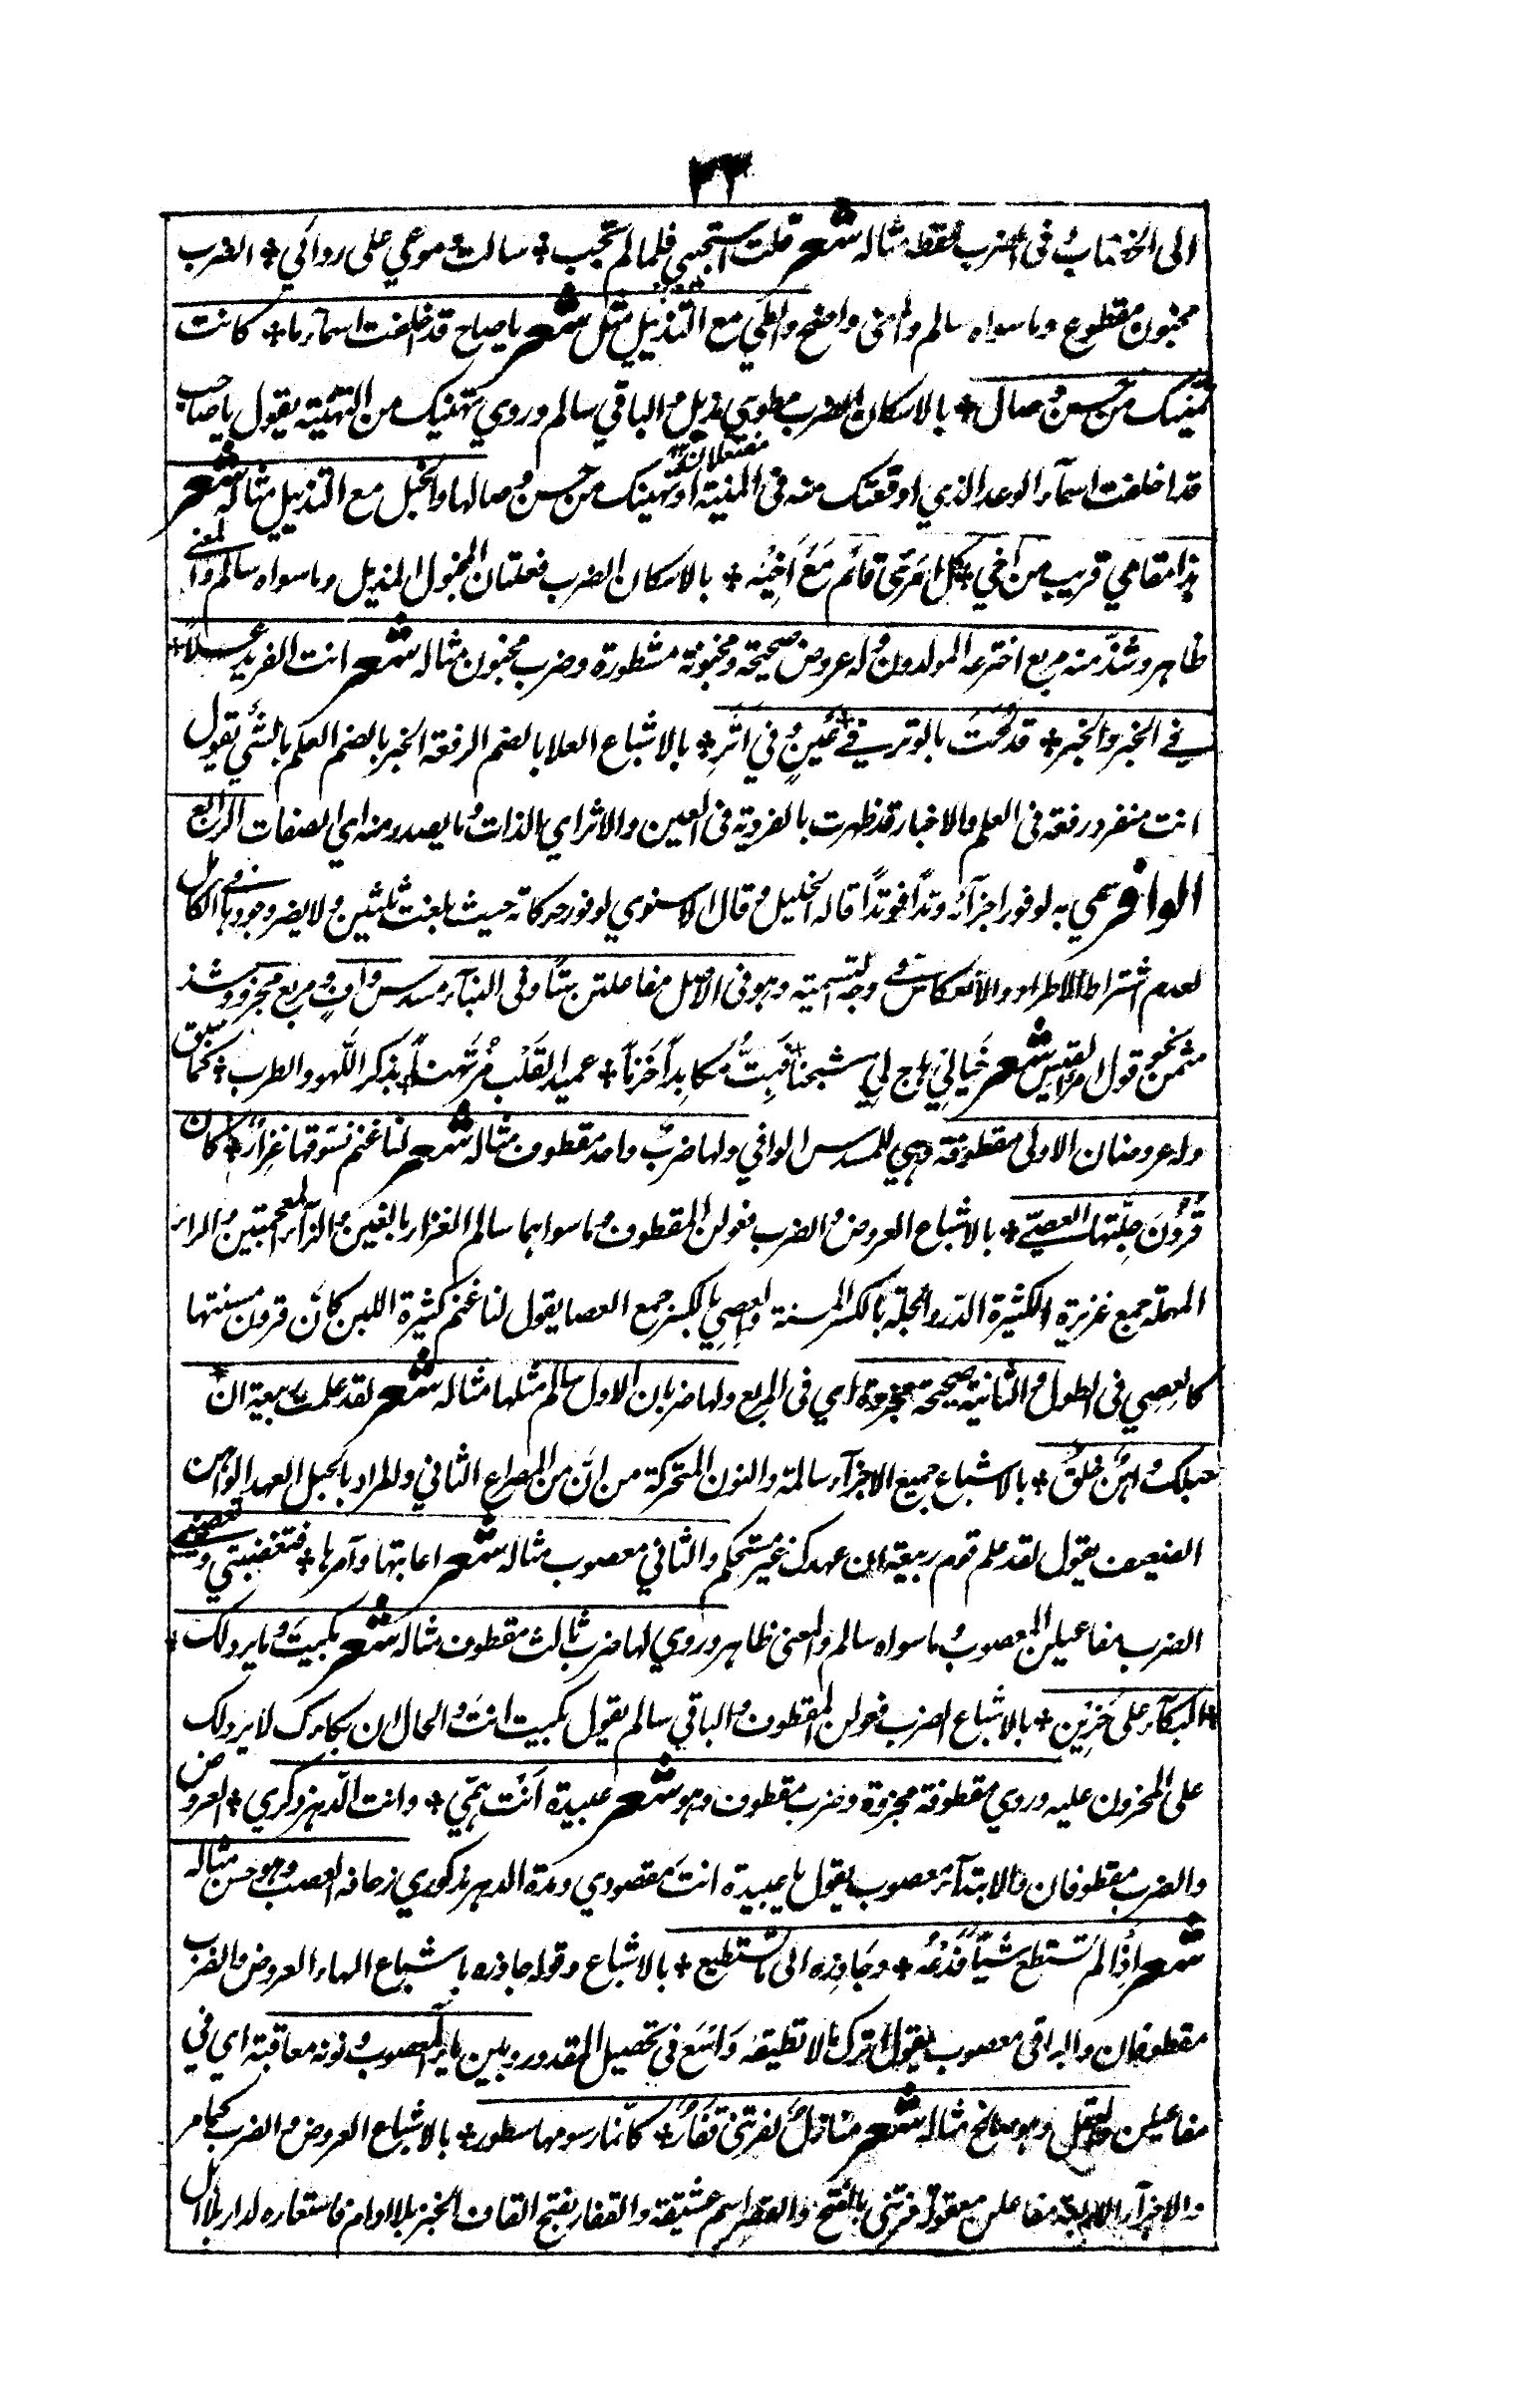 ٢٣
الى الخبن ثابت فى الضرب فقط مثاله شعر قلت استجيبي فلما لم تجب * سالت دموعي على ردائي * الضرب
مخبون مقطوع وما سواه سالم والمعنى واضح والطي مع التذييل مثل شعر يا صاح قد اخلفت اسمآء ما * كانت
تمنيك من حسن وصال * بالاسكان الضرب مطوي مذيل والباقي سالم وروي تهنيك من التهنية يقول يا صاحب
قد اخلفت اسمآء الوعد الذي اوقعتك منه فى المنية او تهنيك من حسن وصالها والخبل مع التذييل مثاله شعر
مفتعلان
هذا مقامي قريب من اخي * كل امرئ قائم مع اخيه * بالاسكان الضرب فعلتان المخبول المذيل وما سواه سالم والمعنى
ظاهر وشذ منه مربع اخترعه المولدون وله عروض صحيحة ومخبونة مشطورة وضرب مخبون مثاله شعر انت الفريد علاً *
في الخبر والخبر * قد لحت بالوتر في * عين وفي اثر * بالاشباع العلا بالضم الرفعة الخبر بالضم العلم بالشئ يقول
انت منفرد رفعة فى العلم والاخبار قد ظهرت بالفردية فى العين والاثر اي الذات وما يصدر منه اي الصفات الرابع
الوافر سمي به لوفور اجزآئه وتداً فوتداً قاله الخليل وقال الاسنوي لوفور حركاته حيث بلغت ثلثين ولا يضر وجودها فى الكامل
لعدم اشتراط الاطراد والانعكاس فى وجه التسمية وهو فى الاصل مفاعلتن ستاً وفى البنآء مسدس وافٍ ومربع مجزو وشذ
مثمن نحو قول امرء القيس شعر خيالٌ هاج لي شجناً * فبتُّ مكابداً حَزَناً * عميد القلب مرتهناً * بذكر اللهو والطرب * كما سبق
وله عروضان الاولى مقطوفة وهي للمسدس الوافي ولها ضربٌ واحد مقطوف مثاله شعر لنا غنم نسوقها غزارٌ * كان
قُرُونَ جِلَّتها العصي * بالاشباع العروض والضرب فعولن المقطوف وما سواهما سالم الغزار بالغين والزآء المعجمتين والراء
المهملة جمع غزيرة الكثيرة الدر والجلة بالكسر المسنة والعصي بالكسر جمع العصا يقول لنا غنم كثيرة اللبن كانّ قرون مسنتها
كالعصي فى الطول والثانية صحيحة مجزوة اي فى المربع ولها ضربان الاول سالم مثلها مثاله شعر لقد علمت ربيعة ان *
حبلك واهن خلق * بالاشباع جميع الاجزآء سالمة والنون المتحركة من انَّ من المصراع الثاني والمراد بالحبل العهد الواهن
الضعيف يقول لقد علم قوم ربيعة ان عهدك غير مستحكم والثاني معصوب مثاله شعر اعاتبها وآمرها * فتغضبني وتعصيني
الضرب مفاعيلن المعصوب وما سواه سالم والمعنى ظاهر وروي لها ضرب ثالث مقطوف مثاله شعر بكيت وما يرد لك *
البكآء على حزين * بالاشباع الضرب فعولن المقطوف والباقي سالم يقول بكيت انت والحال ان بكاءك لا يرد لك
على المحزون عليه وروي مقطوفة مجزوة وضرب مقطوف وهو شعر عبيدة انت همي * وانت الدهر ذكري * العروض
والضرب مقطوفان والابتدآء معصوب يقول يا عبيدة انت مقصودي ومدة الدهر مذكوري زحافه العصب وهو حسن مثاله
شعر اذا لم تستطع شيئاً فدعه * وجاوزه الى ما تستطيع * بالاشباع وقوله جاوزه باشباع الهاء العروض والضرب
مقطوفان والبواقى معصوب يقول اترك ما لا تطيقه واسع فى تحصيل المقدور وبين يآء المعصوب ونونه معاقبة اي في
مفاعيلن والعقل وهو صالح مثاله شعر منازلٌ لفرتنى قفارٌ * كانما رسومها سطور * بالاشباع العروض والضرب كما مر
والاجزآء الاربعة مفاعلن معقولة فرتنى بالفتح والقصر اسم عشيقة والقفار بفتح القاف الخبز بلا ادام فاستعاره لدار بلا اهل